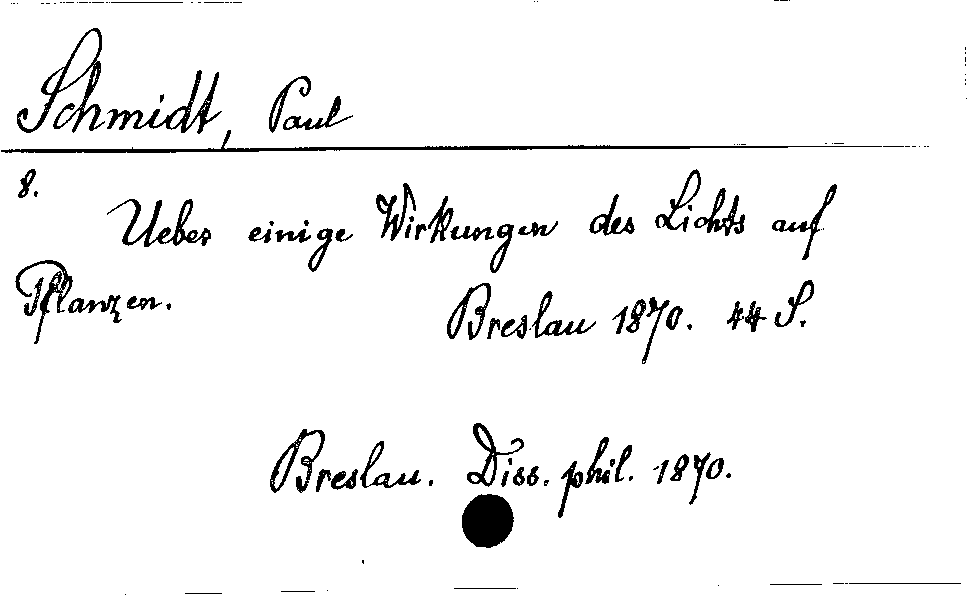 Schmidt, Paul
8.
Ueber einige Wirkungen des Lichts auf
Pflanzen.
Breslau 1870. 44 S.
Breslau. Diss. phil. 1870.